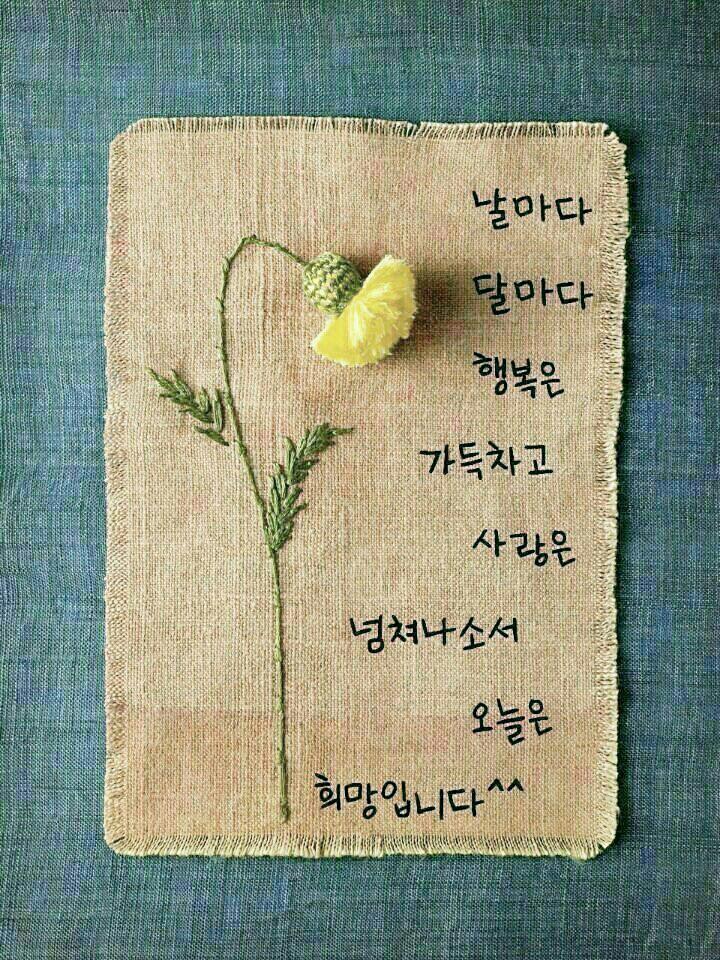 날마다
달마다
행복은
가득차고
사랑은
넘쳐나소서
오늘은
희망입니다^^